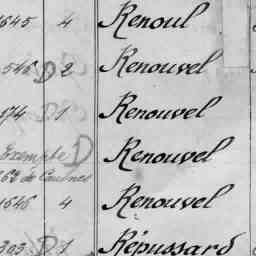 1645 4 Renoul
546 D 2 Renouvel
174 D 1 Renouvel
Exempte D Renouvel
263 de Couënes
1646 4 Renouvel
303 D 1 Répussard